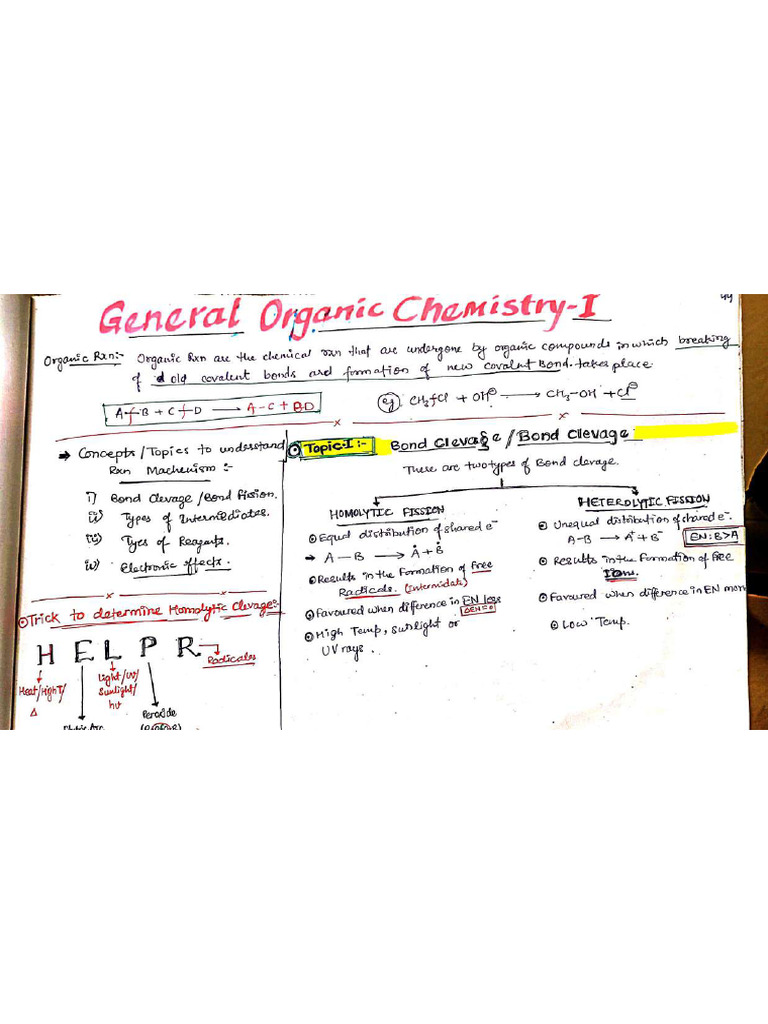 General Organic Chemistry-I
Organic Rxn:- Organic Rxn are the chemical rxn that are undergone by organic compounds in which breaking
of old covalent bonds and formation of new covalent Bond. takes place.
A-B + C-D → A-C + B-D
eg. CH3-Cl + OH⊖ → CH3-OH + Cl⊖
→ Concepts/Topics to understand
Rxn Machenism :-
i) Bond Clevage / Bond fission.
ii) Types of Intermediates.
iii) Tyes of Reagents.
iv) Electronic effects.
⊙Trick to determine Homolytic Clevage:-
H E L P R → Radicales
Heat/High T/
Δ
Light/UV/
Sunlight/
hν
Peroxide
Topic-I :- Bond Clevage / Bond Clevage :
There are two types of Bond clevage.
HOMOLYTIC FISSION
⊙ Equal distribution of shared e⁻
→ A — B → Ȧ + Ḃ
⊙ Results in the Formation of Free
Radicals. (Intermidate)
⊙ Favoured when difference in EN less
ΔEN=0
⊙ High Temp, sunlight or
UV rays.
HETEROLYTIC FISSION
⊙ Unequal distribution of shared e⁻.
A-B → A⁺ + B⁻ EN: B>A
⊙ Results in the Formation of Free
Ions.
⊙ Favoured when difference in EN more
⊙ Low Temp.